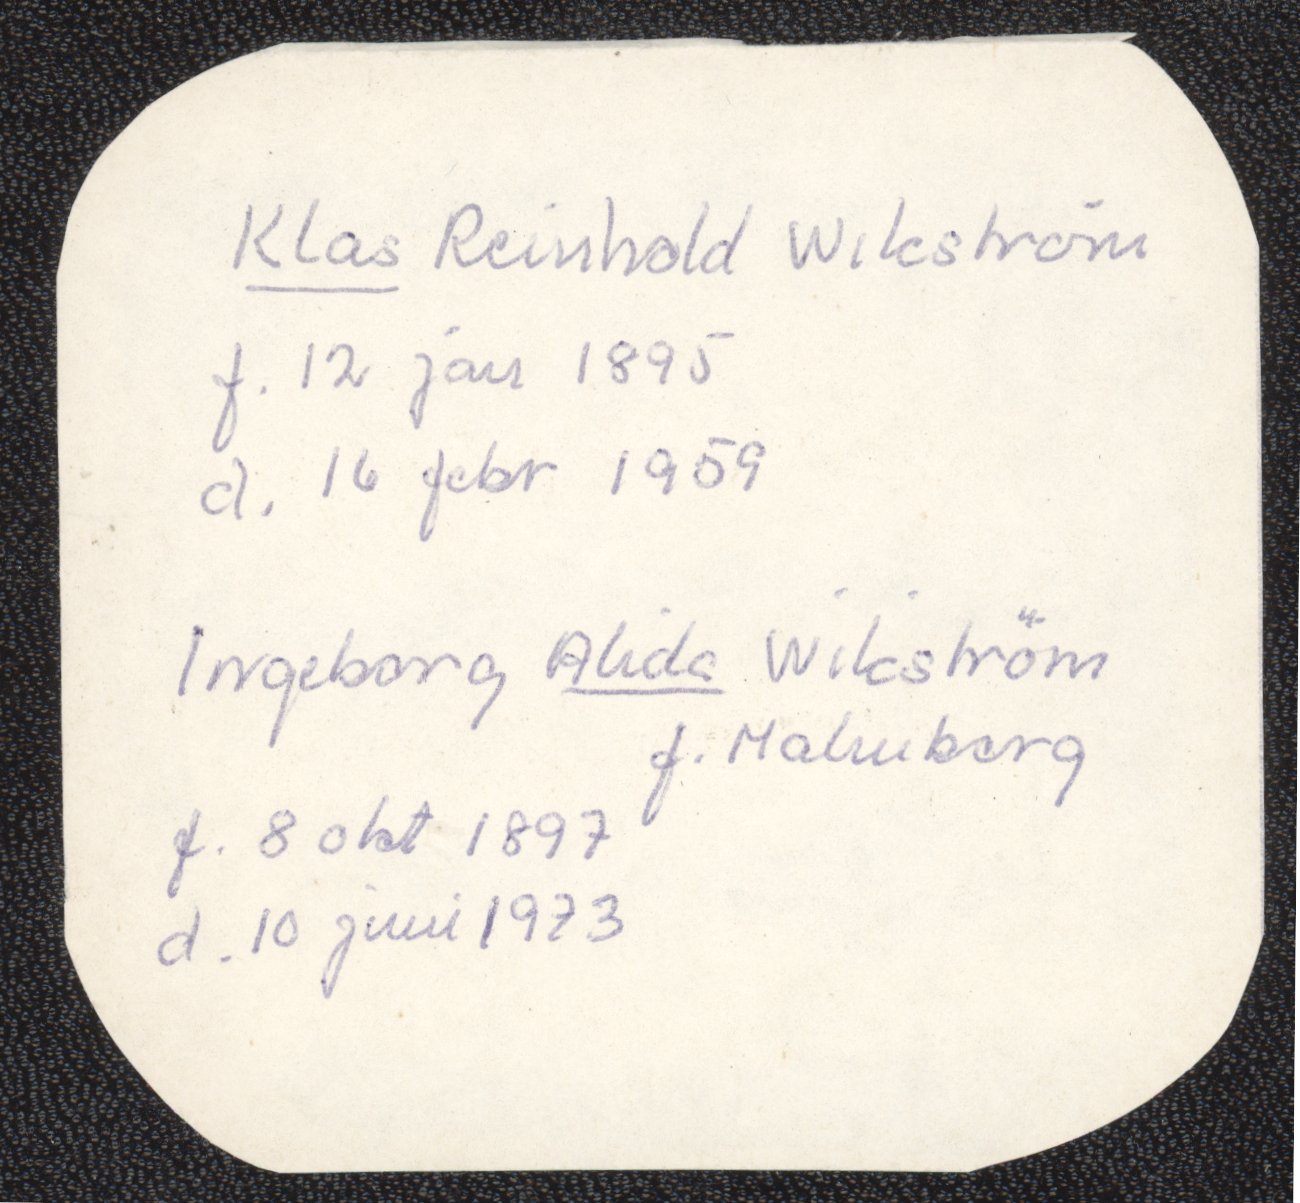 Klas Reinhold Wikström
f. 12 jan 1895
d. 16 febr 1959
Ingeborg Alida Wikström
f. Malmberg
f. 8 okt 1897
d. 10 juni 1973